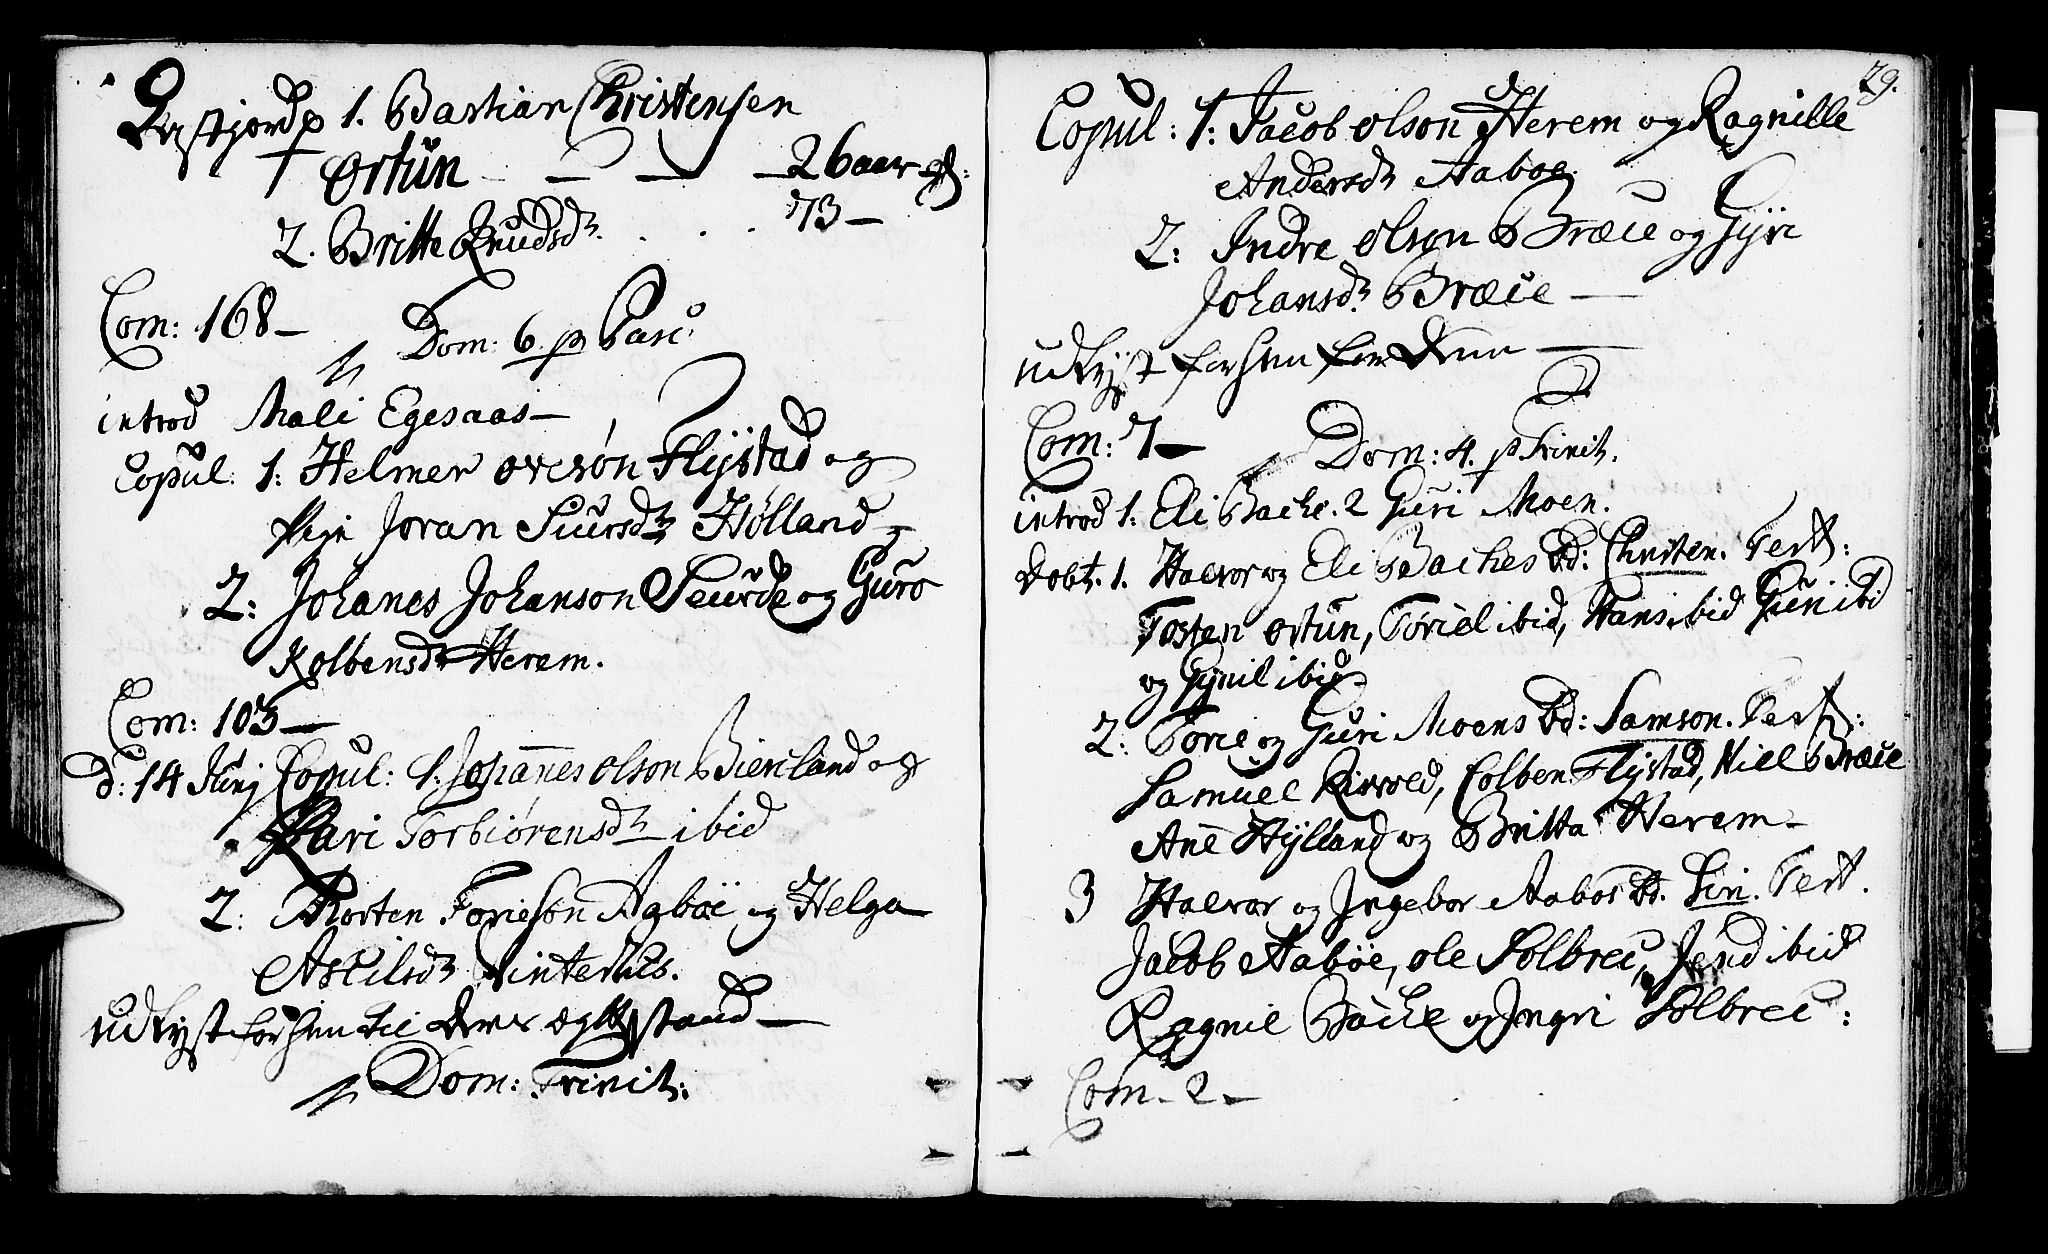 Jordf 1. Bastian Christensen
† Ørtün — — — 26 aar gl:
2. Britte Knudsdr. . . . 73 —
Com: 168 —
Dom: 6. p Pasc:
introd Mali Egesaas —
Copul: 1: Helmer ovesøn Flÿstad og
Pige Joran Siursdr Hølland —
2: Johanes Johanson Seurde og Guro
Kolbensdr Herem.
Com: 103 —
D: 14 Junj Copul: 1. Johannes olson Bierland og
Kari Torbiørensdr ibid
2: Morten Toriesøn Agbøe og Helga
Aslilsdr Vinterhus.
udlÿst forhen til deres ægtestand —
Dom: Trinit:
29.
Copul: 1: Jacob olson Herem og Ragnille
Andersdr Aaboe.
2: Indre olson Bræce og Gÿri
Johansdr Bræce —
udlÿst forhen
Com: 7 —
Dom: 4. p Trinit.
introd 1: Eli Bache. 2 Guri Moen.
Dobt. 1. Halvor og Eli Baches Bd: Christen. Test:
Tosten ortün, Toriel ibid, Hans ibid Guri ibid
og Gÿnil ibid
2: Torie og Guri Moens Bd: Samson. Test:
Samuel Rivold, Colben Flÿstad, Niel Bræce
Ane Hÿlland og Britta Herem —
3 Halvor og Ingebor Aaboe Bd. Siri. Test.
Jacob Aabøe, ole Solbrec, ibid
Ragnil Bache og Ingri Solbrec:
Com. 2 —